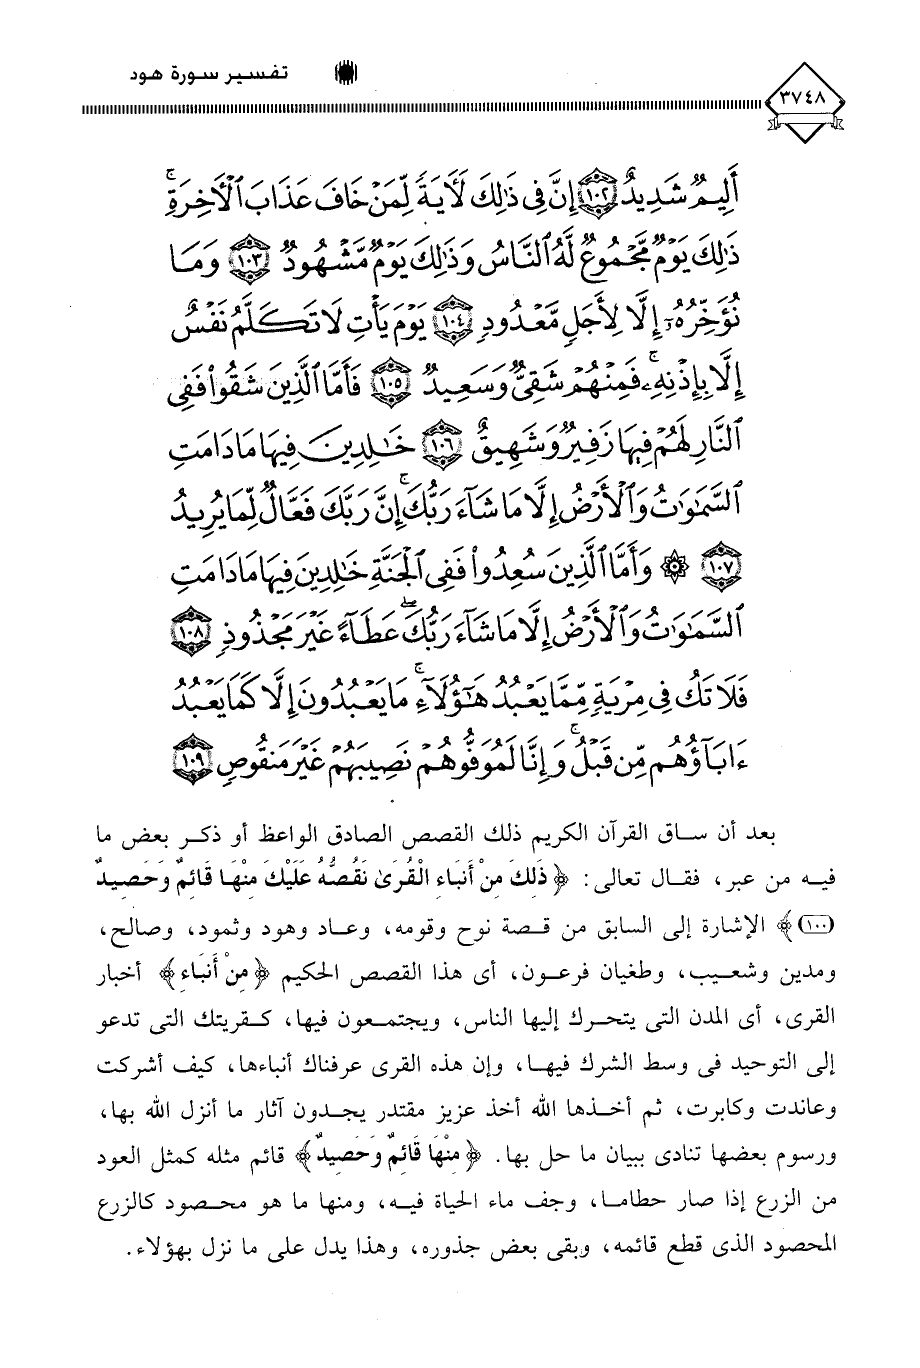 تفسير سورة هود
٣٧٤٨
أَلِيمٌ شَدِيدٌ ١٠٢ إِنَّ فِى ذَٰلِكَ لَآيَةً لِّمَنْ خَافَ عَذَابَ ٱلْآخِرَةِ ۚ
ذَٰلِكَ يَوْمٌ مَّجْمُوعٌ لَّهُ ٱلنَّاسُ وَذَٰلِكَ يَوْمٌ مَّشْهُودٌ ١٠٣ وَمَا
نُؤَخِّرُهُۥٓ إِلَّا لِأَجَلٍ مَّعْدُودٍ ١٠٤ يَوْمَ يَأْتِ لَا تَكَلَّمُ نَفْسٌ
إِلَّا بِإِذْنِهِۦ ۚ فَمِنْهُمْ شَقِىٌّ وَسَعِيدٌ ١٠٥ فَأَمَّا ٱلَّذِينَ شَقُوا۟ فَفِى
ٱلنَّارِ لَهُمْ فِيهَا زَفِيرٌ وَشَهِيقٌ ١٠٦ خَٰلِدِينَ فِيهَا مَا دَامَتِ
ٱلسَّمَٰوَٰتُ وَٱلْأَرْضُ إِلَّا مَا شَآءَ رَبُّكَ ۚ إِنَّ رَبَّكَ فَعَّالٌ لِّمَا يُرِيدُ
١٠٧ ۞ وَأَمَّا ٱلَّذِينَ سُعِدُوا۟ فَفِى ٱلْجَنَّةِ خَٰلِدِينَ فِيهَا مَا دَامَتِ
ٱلسَّمَٰوَٰتُ وَٱلْأَرْضُ إِلَّا مَا شَآءَ رَبُّكَ ۖ عَطَآءً غَيْرَ مَجْذُوذٍ ١٠٨
فَلَا تَكُ فِى مِرْيَةٍ مِّمَّا يَعْبُدُ هَٰٓؤُلَآءِ ۚ مَا يَعْبُدُونَ إِلَّا كَمَا يَعْبُدُ
ءَابَآؤُهُم مِّن قَبْلُ ۚ وَإِنَّا لَمُوَفُّوهُمْ نَصِيبَهُمْ غَيْرَ مَنقُوصٍ ١٠٩
بعد أن ساق القرآن الكريم ذلك القصص الصادق الواعظ أو ذكر بعض ما
فيه من عبر، فقال تعالى: ﴿ ذَلِكَ مِنْ أَنبَاءِ الْقُرَىٰ نَقُصُّهُ عَلَيْكَ مِنْهَا قَائِمٌ وَحَصِيدٌ
(١٠٠)﴾ الإشارة إلى السابق من قصة نوح وقومه، وعاد وهود وثمود، وصالح،
ومدين وشعيب، وطغيان فرعون، أى هذا القصص الحكيم ﴿ مِنْ أَنبَاءِ ﴾ أخبار
القرى، أى المدن التى يتحرك إليها الناس، ويجتمعون فيها، كقريتك التى تدعو
إلى التوحيد فى وسط الشرك فيها، وإن هذه القرى عرفناك أنباءها، كيف أشركت
وعاندت وكابرت، ثم أخذها الله أخذ عزيز مقتدر يجدون آثار ما أنزل الله بها،
ورسوم بعضها تنادى ببيان ما حل بها. ﴿ مِنْهَا قَائِمٌ وَحَصِيدٌ﴾ قائم مثله كمثل العود
من الزرع إذا صار حطاما، وجف ماء الحياة فيه، ومنها ما هو محصود كالزرع
المحصود الذى قطع قائمه، وبقى بعض جذوره، وهذا يدل على ما نزل بهؤلاء.